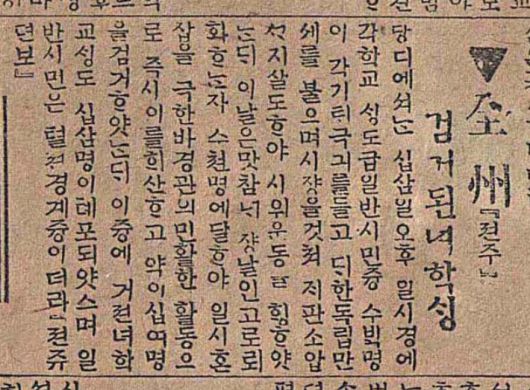 ▼全州『젼주』
검거된녀학싱
당디에셔는 십삼일오후 일시경에
각학교 싱도급일반시민즁 수빅명
이 각기태극긔를들고 대한독립만
셰를 불으며시쟝을것쳐 재판소압
ᄭᆞ지살도ᄒᆞ야 시위운동을 힝ᄒᆞ얏
는대 이날은맛참 쟝날인고로 뢰
화ᄒᆞ는쟈 수쳔명에달ᄒᆞ야 일시혼
잡을 극한바경관의민활한 활동으
로 즉시이를히산ᄒᆞ고 약이십여명
을검거ᄒᆞ얏는대 이즁에 거린녀학
교싱도 십삼명이톄포되얏스며 일
반시민은 텰 경계즁이더라『젼쥬
뎐보』